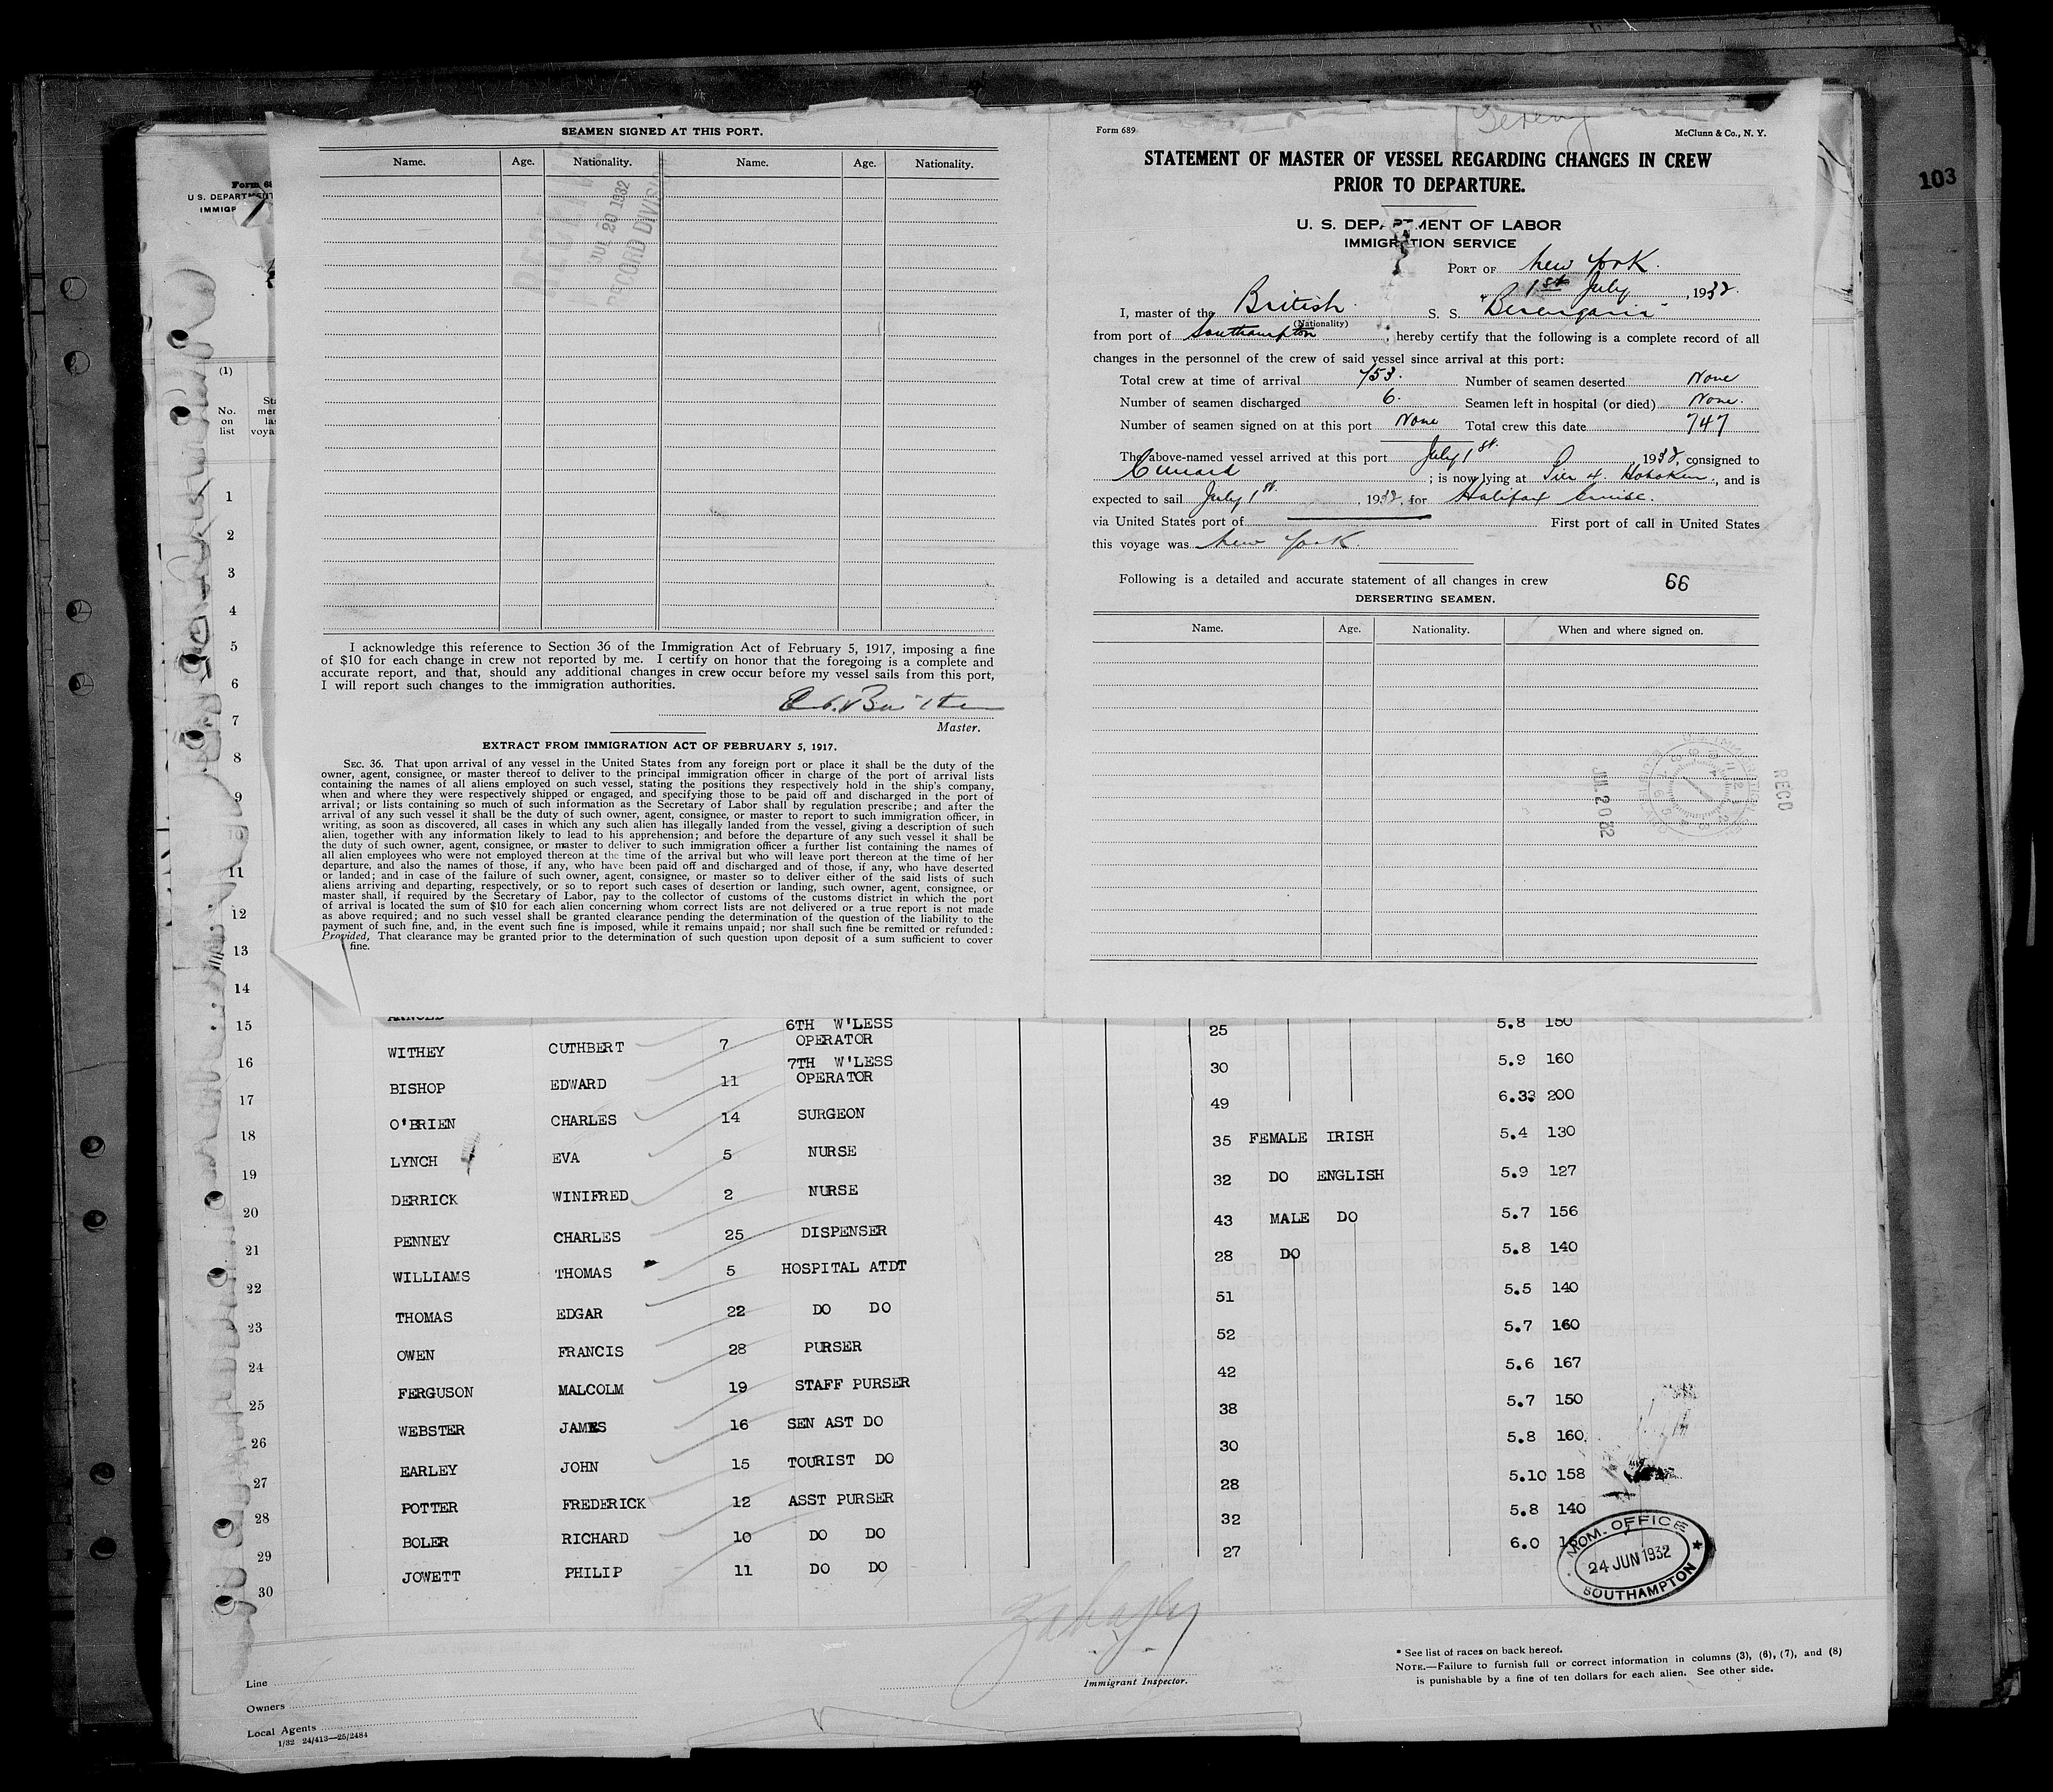 SEAMEN SIGNED AT THIS PORT.
Name. Age. Nationality. Name. Age. Nationality.
JUL 20 1932
RECORD DIVISION
I acknowledge this reference to Section 36 of the Immigration Act of February 5, 1917, imposing a fine
of $10 for each change in crew not reported by me. I certify on honor that the foregoing is a complete and
accurate report, and that, should any additional changes in crew occur before my vessel sails from this port,
I will report such changes to the immigration authorities.
Master.
EXTRACT FROM IMMIGRATION ACT OF FEBRUARY 5, 1917.
SEC. 36. That upon arrival of any vessel in the United States from any foreign port or place it shall be the duty of the
owner, agent, consignee, or master thereof to deliver to the principal immigration officer in charge of the port of arrival lists
containing the names of all aliens employed on such vessel, stating the positions they respectively hold in the ship's company,
when and where they were respectively shipped or engaged, and specifying those to be paid off and discharged in the port of
arrival; or lists containing so much of such information as the Secretary of Labor shall by regulation prescribe; and after the
arrival of any such vessel it shall be the duty of such owner, agent, consignee, or master to report to such immigration officer, in
writing, as soon as discovered, all cases in which any such alien has illegally landed from the vessel, giving a description of such
alien, together with any information likely to lead to his apprehension; and before the departure of any such vessel it shall be
the duty of such owner, agent, consignee, or master to deliver to such immigration officer a further list containing the names of
all alien employees who were not employed thereon at the time of the arrival but who will leave port thereon at the time of her
departure, and also the names of those, if any, who have been paid off and discharged and of those, if any, who have deserted
or landed; and in case of the failure of such owner, agent, consignee, or master so to deliver either of the said lists of such
aliens arriving and departing, respectively, or so to report such cases of desertion or landing, such owner, agent, consignee, or
master shall, if required by the Secretary of Labor, pay to the collector of customs of the customs district in which the port
of arrival is located the sum of $10 for each alien concerning whom correct lists are not delivered or a true report is not made
as above required; and no such vessel shall be granted clearance pending the determination of the question of the liability to the
payment of such fine, and, in the event such fine is imposed, while it remains unpaid; nor shall such fine be remitted or refunded:
Provided, That clearance may be granted prior to the determination of such question upon deposit of a sum sufficient to cover
fine.
Form 689 McClunn & Co., N. Y.
STATEMENT OF MASTER OF VESSEL REGARDING CHANGES IN CREW
PRIOR TO DEPARTURE.
U. S. DEPARTMENT OF LABOR
IMMIGRATION SERVICE
PORT OF New York.
1st July, 1932.
I, master of the British S. S. "Berengaria"
(Nationality)
from port of Southampton, hereby certify that the following is a complete record of all
changes in the personnel of the crew of said vessel since arrival at this port:
Total crew at time of arrival 753. Number of seamen deserted None
Number of seamen discharged 6. Seamen left in hospital (or died) None.
Number of seamen signed on at this port None Total crew this date 747
The above-named vessel arrived at this port July 1st. 1932, consigned to
Cunard; is now lying at Pier 4. Hoboken, and is
expected to sail July 1st. 1932, for Halifax Cruise.
via United States port of First port of call in United States
this voyage was New York.
Following is a detailed and accurate statement of all changes in crew 66
DERSERTING SEAMEN.
Name. Age. Nationality. When and where signed on.
JUL 20 32
RECD
103
U. S. DEPARTMENT
(1)
No.
on
list
1
2
3
4
5
6
7
8
9
11
12
13
14
15 6TH W'LESS 25 5.8 150
WITHEY CUTHBERT 7 OPERATOR
16 7TH W'LESS 30 5.9 160
BISHOP EDWARD 11 OPERATOR
17 O'BRIEN CHARLES 14 SURGEON 49 6.33 200
18 LYNCH EVA 5 NURSE 35 FEMALE IRISH 5.4 130
19 DERRICK WINIFRED 2 NURSE 32 DO ENGLISH 5.9 127
20 PENNEY CHARLES 25 DISPENSER 43 MALE DO 5.7 156
21 WILLIAMS THOMAS 5 HOSPITAL ATDT 28 DO 5.8 140
22 THOMAS EDGAR 22 DO DO 51 5.5 140
23 OWEN FRANCIS 28 PURSER 52 5.7 160
24 FERGUSON MALCOLM 19 STAFF PURSER 42 5.6 167
25 WEBSTER JAMES 16 SEN AST DO 38 5.7 150
26 EARLEY JOHN 15 TOURIST DO 30 5.8 160
27 POTTER FREDERICK 12 ASST PURSER 28 5.10 158
28 BOLER RICHARD 10 DO DO 32 5.8 140
29 JOWETT PHILIP 11 DO DO 27 6.0
30
24 JUN 1932
SOUTHAMPTON
Immigrant Inspector.
* See list of races on back hereof.
NOTE.—Failure to furnish full or correct information in columns (3), (6), (7), and (8)
is punishable by a fine of ten dollars for each alien. See other side.
Line
Owners
Local Agents
1/32 24/413—25/2484